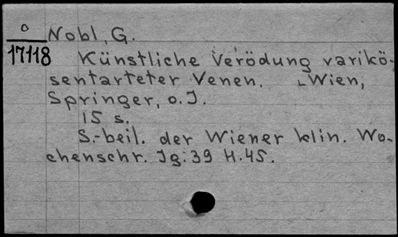 o Nobl, G.
17118
Künstliche Verödung varikö-
sentarteter Venen. Wien,
Springer, o.J.
15 s.
S.-beil. der Wiener klin. Wo-
chenschr. Jg: 39 H. 45.